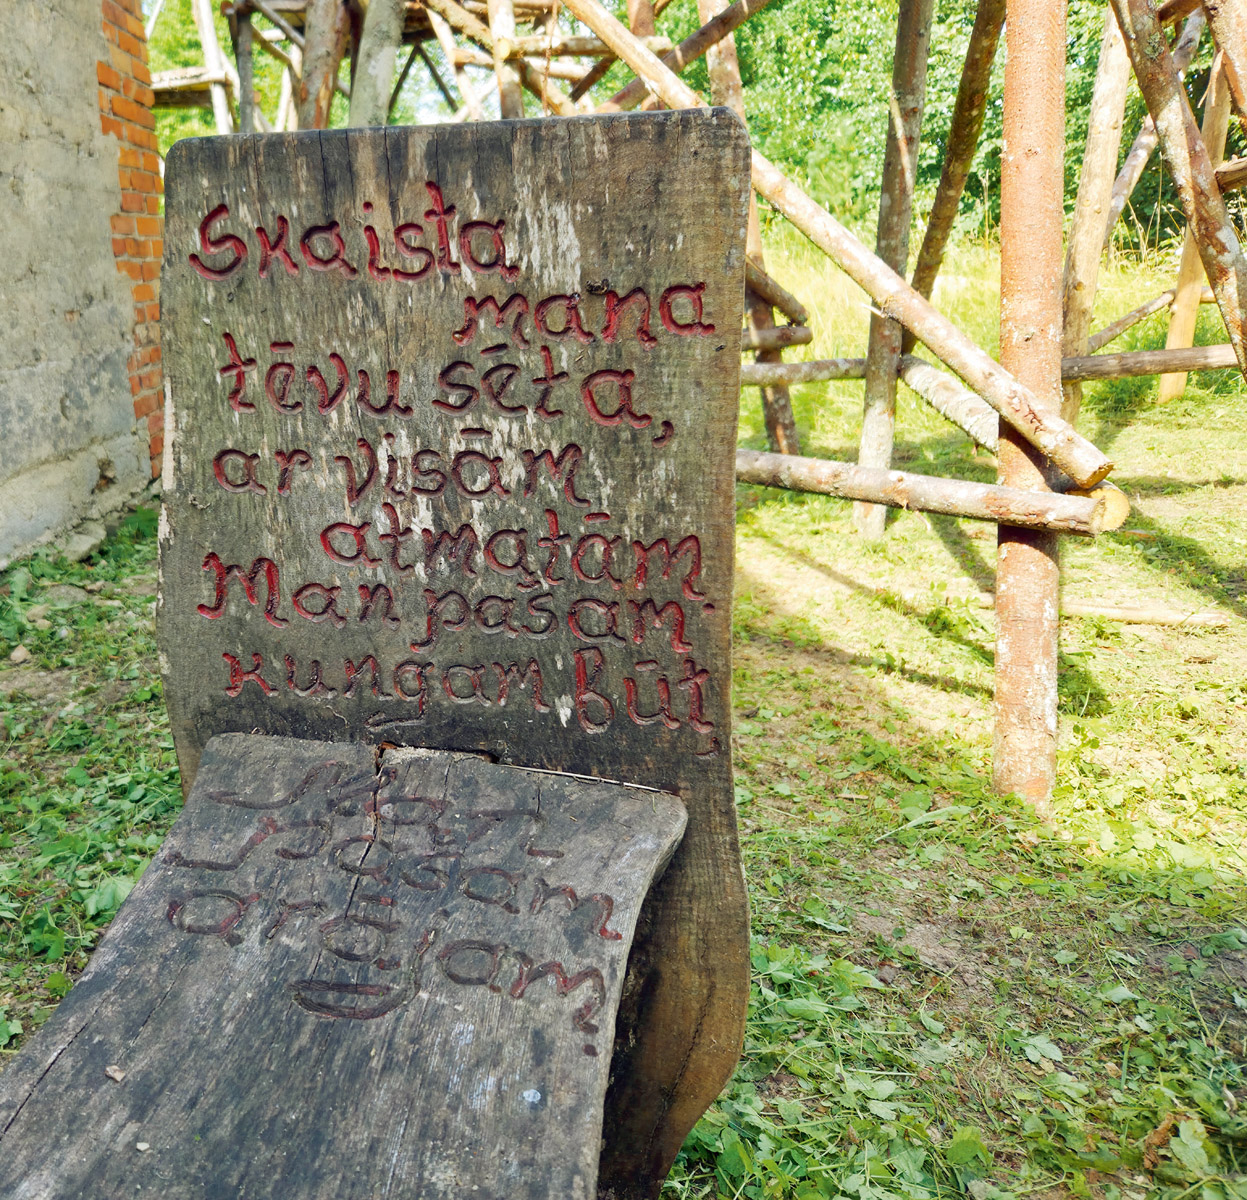 Skaista
mana
tēvu sēta,
ar visām
atmatām.
Man pašam
kungam būt,
arājam.